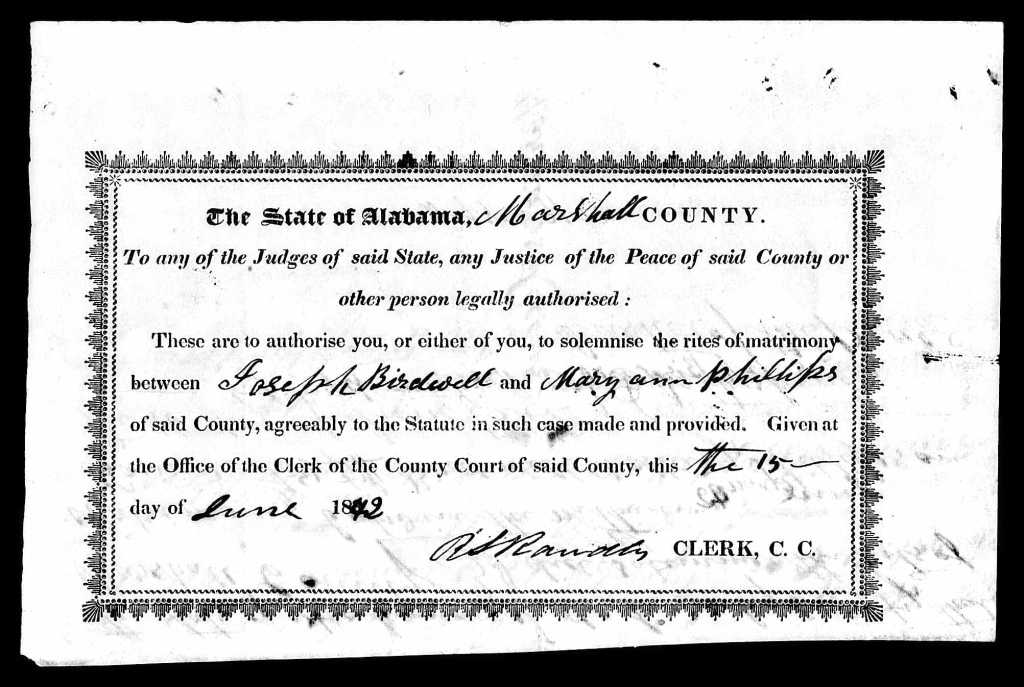 The State of Alabama, Marshall COUNTY.
To any of the Judges of said State, any Justice of the Peace of said County or
other person legally authorised :
These are to authorise you, or either of you, to solemnise the rites of matrimony
between Joseph Birdwell and Mary ann Phillips
of said County, agreeably to the Statute in such case made and provided. Given at
the Office of the Clerk of the County Court of said County, this the 15
day of June 1842
CLERK, C. C.